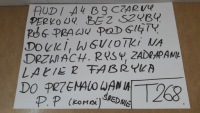 AUDI A4 B9 CZARNY
PERŁOWY BEZ SZYBY
RÓG PRAWY PODGIĘTY
DOŁKI, WGNIOTKI NA
DRZWIACH. RYSY, ZADRAPANIA
LAKIER FABRYKA
DO PRZEMALOWANIA
P.P (KOMBI) ŚREDNIE
T268